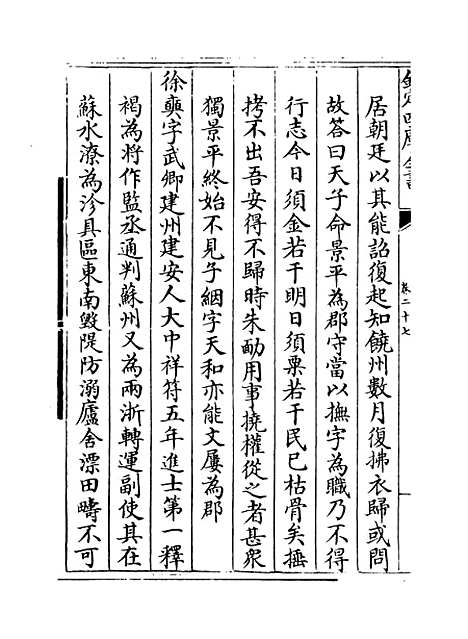 欽定四庫全書
卷二十七
居朝廷以其能詔復起知饒州數月復拂衣歸或問
故答曰天子命景平為郡守當以撫字為職乃不得
行志今日須金若干明日須粟若干民已枯骨矣捶
拷不出吾安得不歸時朱勔用事撓權從之者甚衆
獨景平終始不見子絪字天和亦能文屢為郡
徐奭字武卿建州建安人大中祥符五年進士第一釋
褐為將作監丞通判蘇州又為兩浙轉運副使其在
蘇水潦為沴具區東南毀隄防溺廬舍漂田疇不可